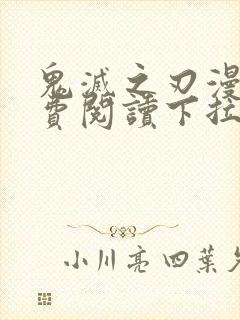 鬼滅之刃漫
費閱讀下拉
小川亮 四葉